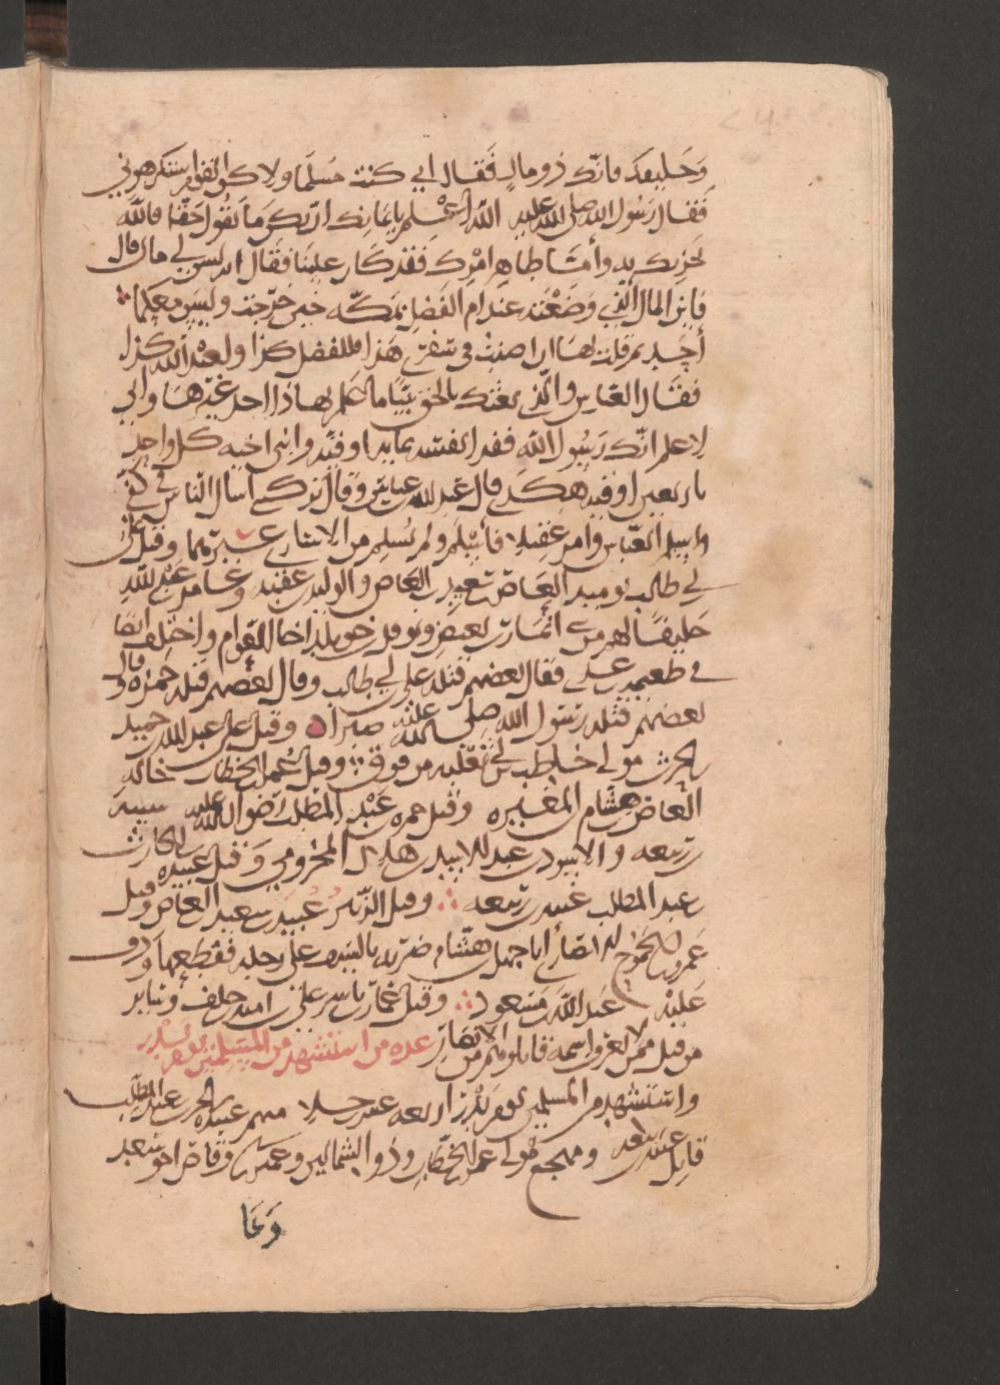 وَحَليفك فانّك ذو مالٍ فَقال اني كنت مُسلمًا ولاكن القوم استكرهوني
فَقال رَسُول الله صلى الله عليه الله اعْلم بايمانك ان يكن مَا تقُول حَقًّا فالله
يَجزيك به وأمّا ظاهِر امْرِك فَقد كان علينا فقال انه ليس لي مال قال
فاين المال الذي وَضَعْته عند ام الفَضل بمَكّه حَين خرَجت وليسَ معكما
أحَد ثم قلت لها ان اصبت في سَفري هَذا فللفضل كذا ولعبْد الله كذا
فقال العبّاس والّذي بعَثك بالحق نبيًّا ما علم بهاذا احد غيرهَا واني
لاعلم انّك رَسُول الله ففدا نفسه بمايه اوقيّه وابنى اخيه كل واحدٍ
باربعين اوقيه هكذى قال عَبد الله بن عباس وقال تركني اسال الناس في كفي
واسلم العبّاس وامر عقيلا فأسْلم ولم يُسلم من الاسارى غيرهما وقتل علي
بن ابي طالب يوميد العَاص بن سَعيد بن العَاص والوليد بن عقبه وعَامر بن عَبْد الله
حَليفًا لهم من انمار بن بغيض ونوفل بن خويلد اخا العَوام واختلف ايضًا
في طعيمه بن عدي فقال بعضهم قتله علي بن ابي طالب وقال بعضهم قتله حمزه وقال
بعضهم قتله رَسول الله صلى الله عليْه صبرا وقتل علي عبد الله بن حميد
بن الحرث مولى حاطب بن ابي بلتعه وقتل عُمر بن الخطاب خاله
العاص بن هشام بن المغيره وقتل حمزه بن عَبْد المطلب رضوان الله عليه شيبة
بن ربيعه والاسود بن عبد الاسد بن هلال المخزومي وَقتل عبيده بن الحارث
بن عبد المطلب عتبه بن ربيعه وقتل الزّبير عُبيدَ بن سعيد بن العاص وقتل
عَمرو بن الجموح الانصاري اباجهل بن هشام ضربه بالسيف على رجله فقطعها وذفّ
عَليْه عَبد الله بن مَسعود وقتل عمار بن ياسر علي بن اميه بن خلف وساير
من قتل ممن لا يعرف اسمه قاتلوهم من الانصار عده من استشهد من المسلمين يوم بدر
واستشهد من المسلمين يوم بَدْر اربعه عشر رجلا منهم عبيده بن الحرث بن عبد المطلب
قاتل عتبه بن ربيعه ومهجع مولى عمر بن الخطاب وذو الشمالين وعمير بن ابي وقاص اخو سعد
وعا